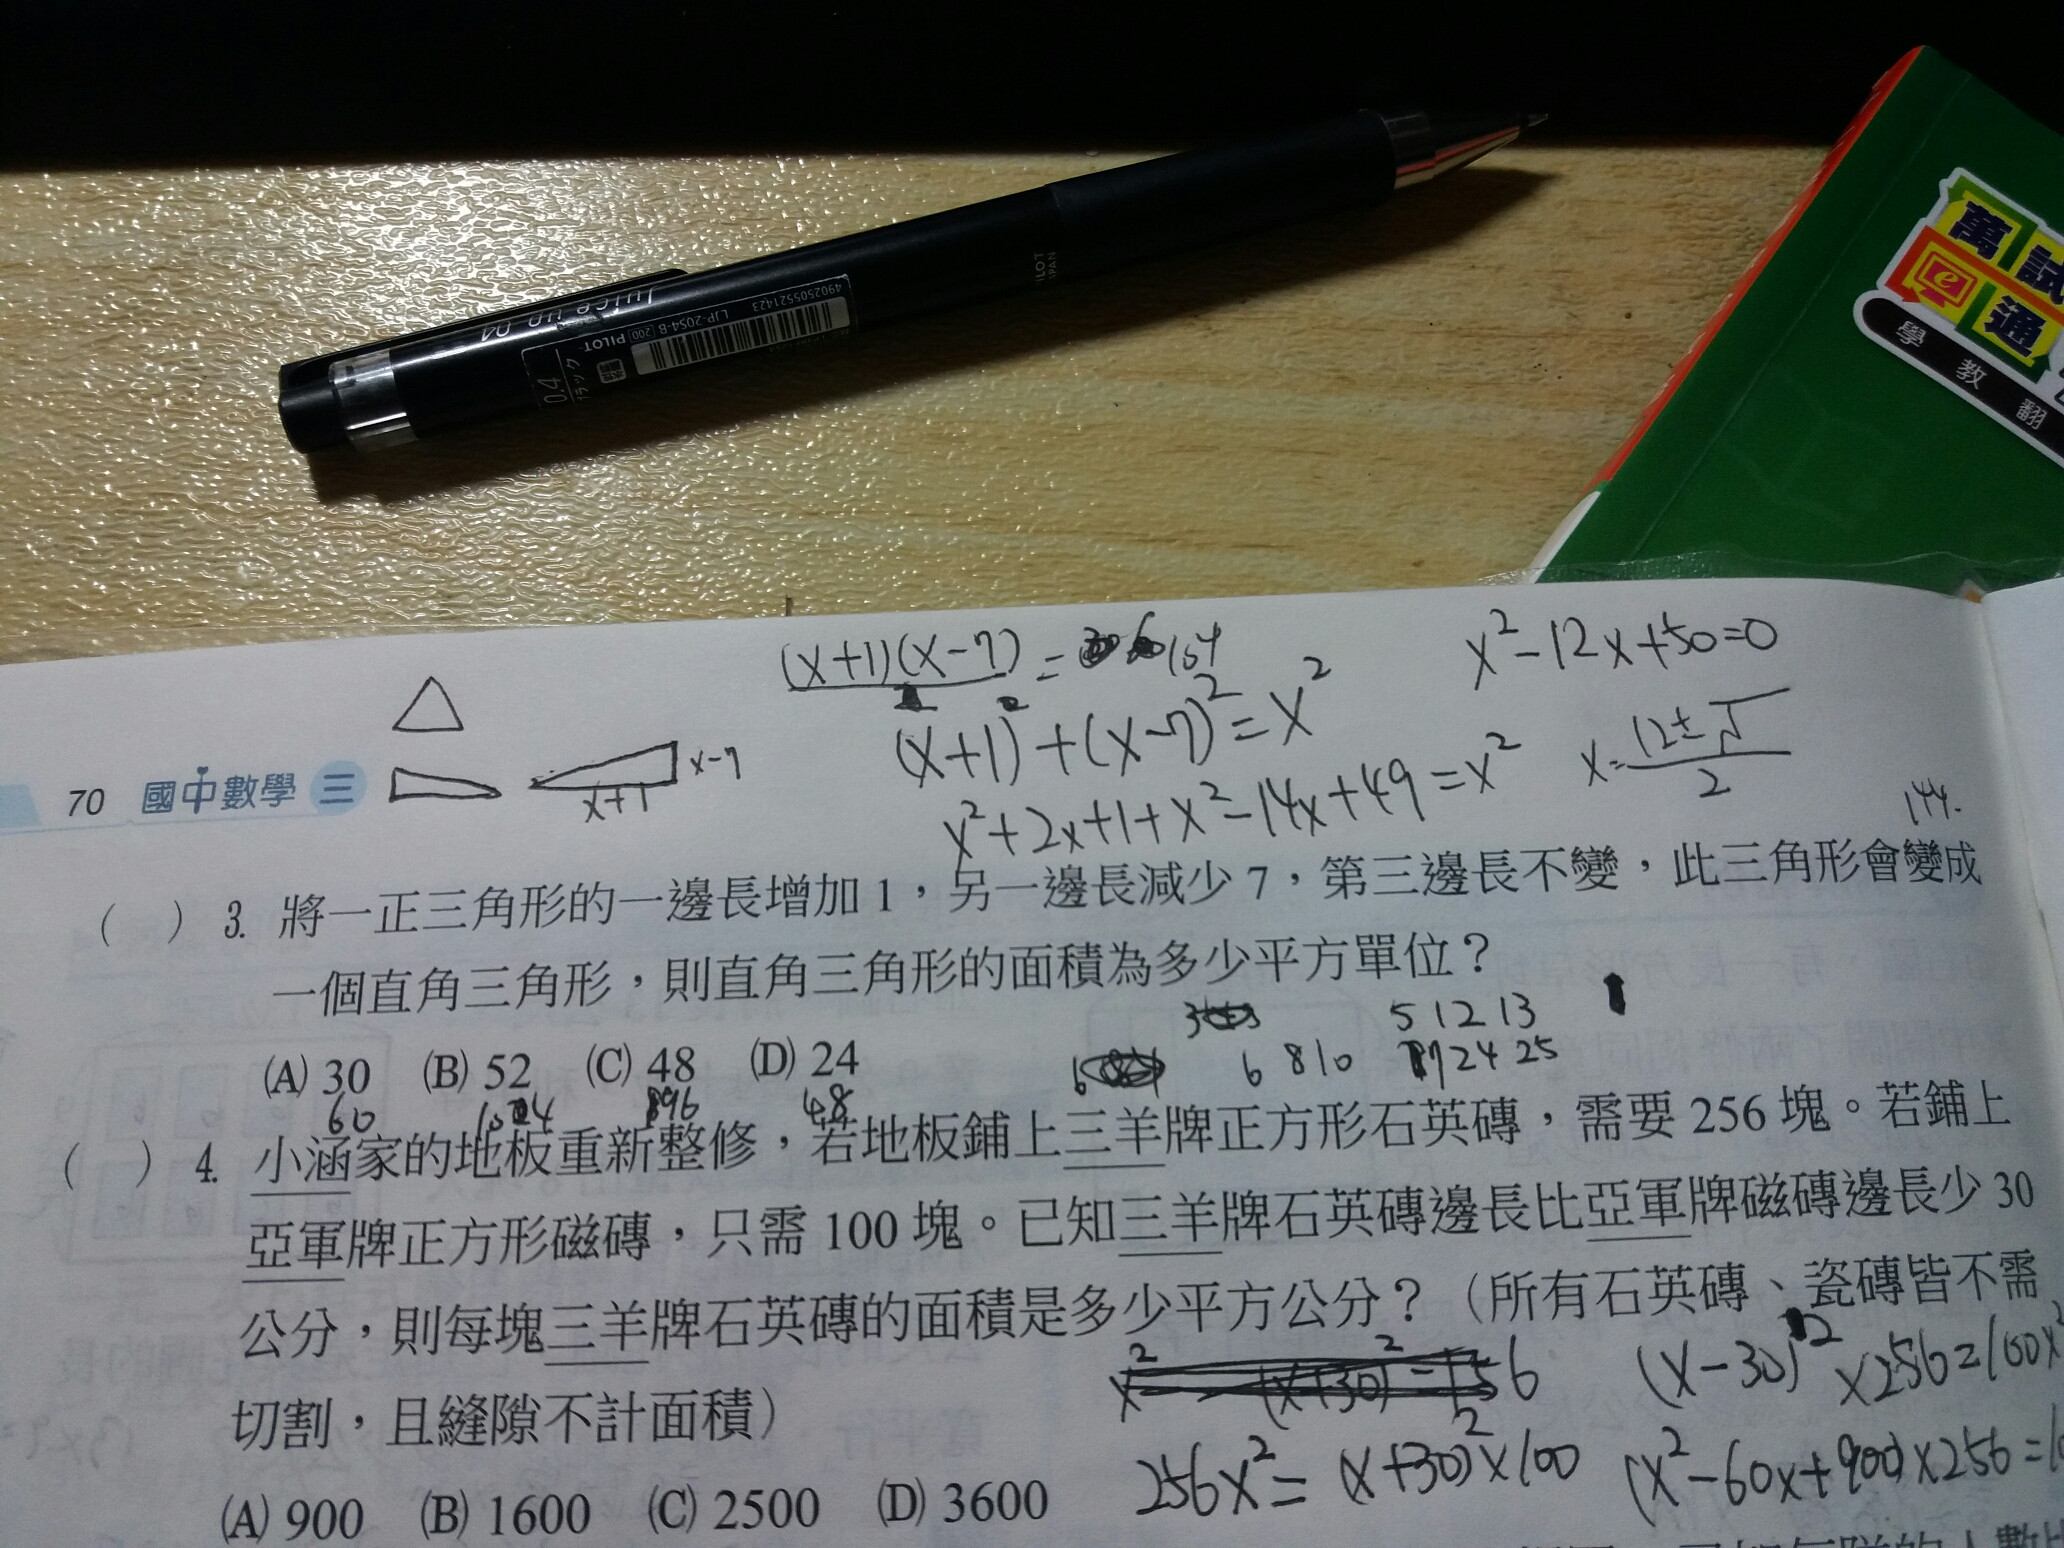 Juice up 04
0.4
ブラック
PILOT
200
LJP-20S4-B
4902505521423
萬試
e 通
學教翻
(x+1)(x-7) = 104
2
(x+1)²+(x-7)²=x²
x²+2x+1+x²-14x+49=x²
x²-12x+50=0
x=12±√
2
144.
x-7
x+1
70 國中數學 三
( ) 3. 將一正三角形的一邊長增加 1，另一邊長減少 7，第三邊長不變，此三角形會變成
一個直角三角形，則直角三角形的面積為多少平方單位？
5 12 13
6 8 10 7 24 25
(A) 30 (B) 52 (C) 48 (D) 24
60 104 96 48
( ) 4. 小涵家的地板重新整修，若地板鋪上三羊牌正方形石英磚，需要 256 塊。若鋪上
亞軍牌正方形磁磚，只需 100 塊。已知三羊牌石英磚邊長比亞軍牌磁磚邊長少 30
公分，則每塊三羊牌石英磚的面積是多少平方公分？（所有石英磚、瓷磚皆不需
切割，且縫隙不計面積）
(x-30)²x256=100x²
256x²=(x+30)²x100
(x²-60x+900)x256=1
(A) 900 (B) 1600 (C) 2500 (D) 3600